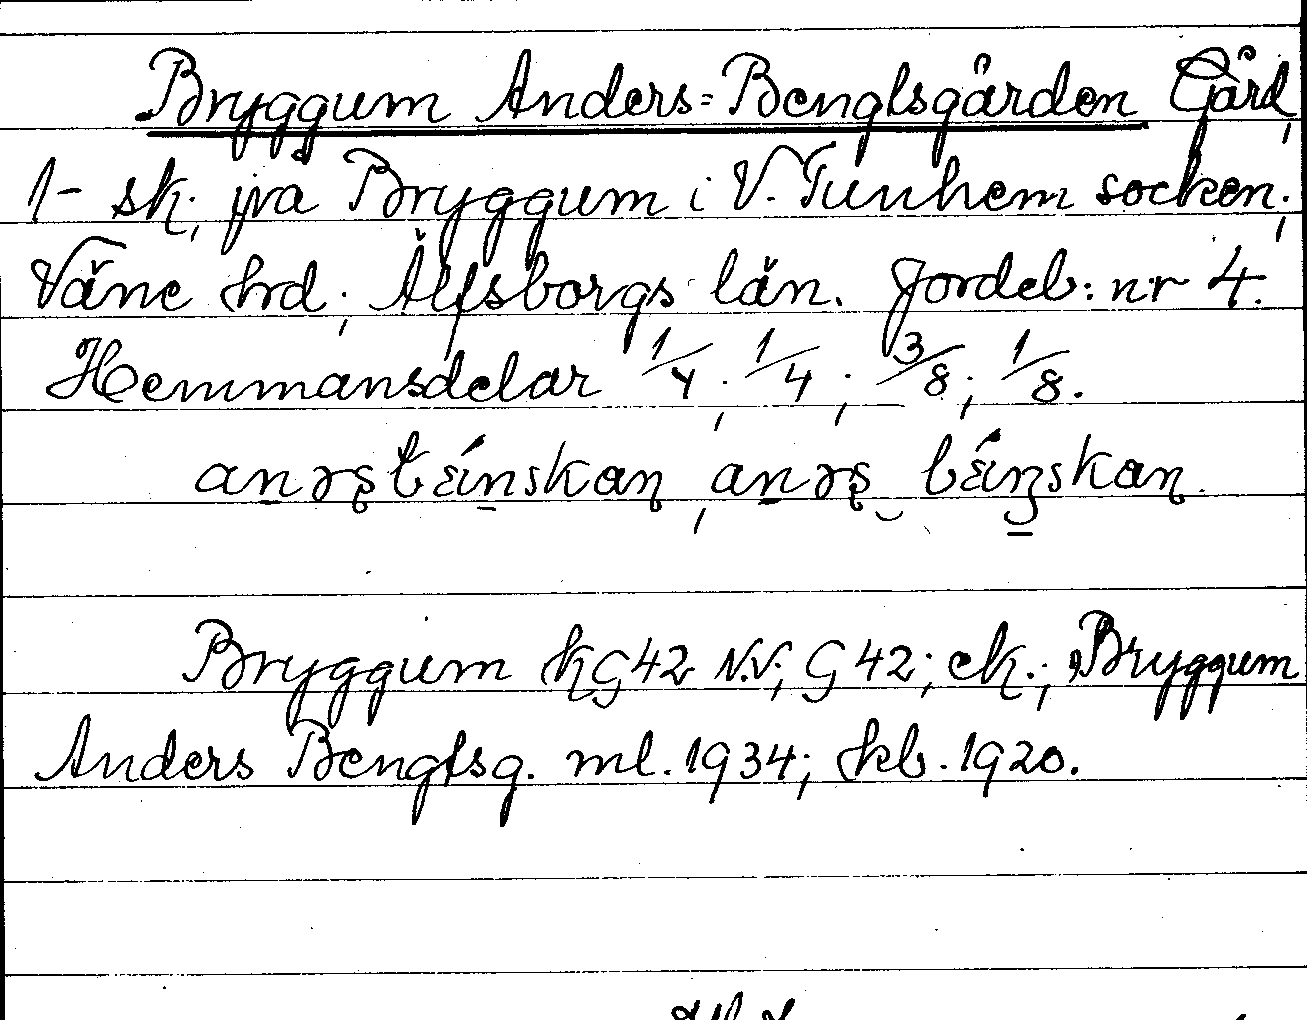 Bryggum Anders=Bengtsgården Gård,
1- sk, på Bryggum i V. Tunhem socken,
Väne hrd, Älfsborgs län. Jordeb: nr 4.
Hemmansdelar 1/4, 1/4, 3/8, 1/8.
Bryggum kG42 N.V; G42; ek.; Bryggum
Anders Bengtsg. ml. 1934; kb. 1920.